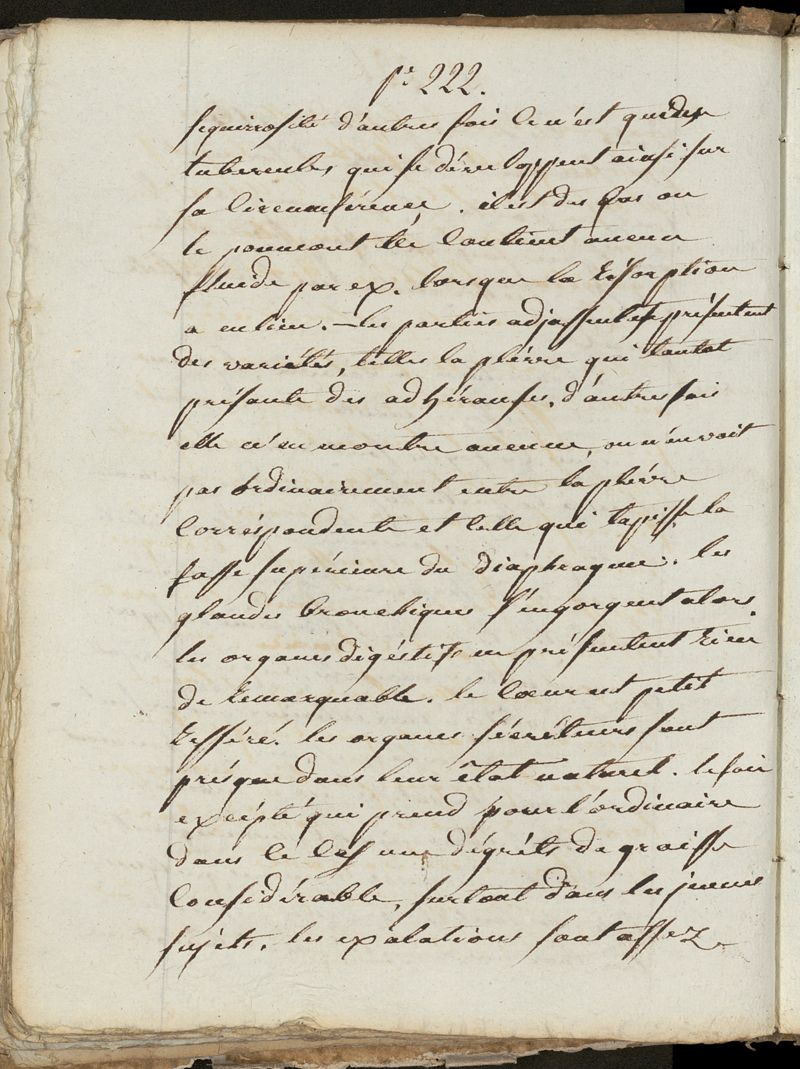 pe 222.
squirrosité d'autres fois ce n'est que des
tubercules qui se dévéloppent ainsi sur
sa circonférence. il est des cas ou
le poumont ne contient aucun
fluide par ex. lorsque la résorption
a eu lieu. — les parties adjassentes présentent
des variétés, telles la plévre qui tantot
présante des adhéranses, d'autres fois
elle n'en montre aucune, on n'en voit
pas ordinairement entre la plévre
correspondente et celle qui tapisse la
fasse supérieure du diaphragme. les
glandes bronchiques s'engorgent alors.
les organes digéstifs en présentent rien
de remarquable. le coeur est petit
resséré. les organes sécréteurs sont
présque dans leur état naturel. le foie
excépté qui prend pour l'ordinaire
dans ce cas une dégréts de graisse
considérable, surtout dans les jeunes
sujets. les exalations sont assez